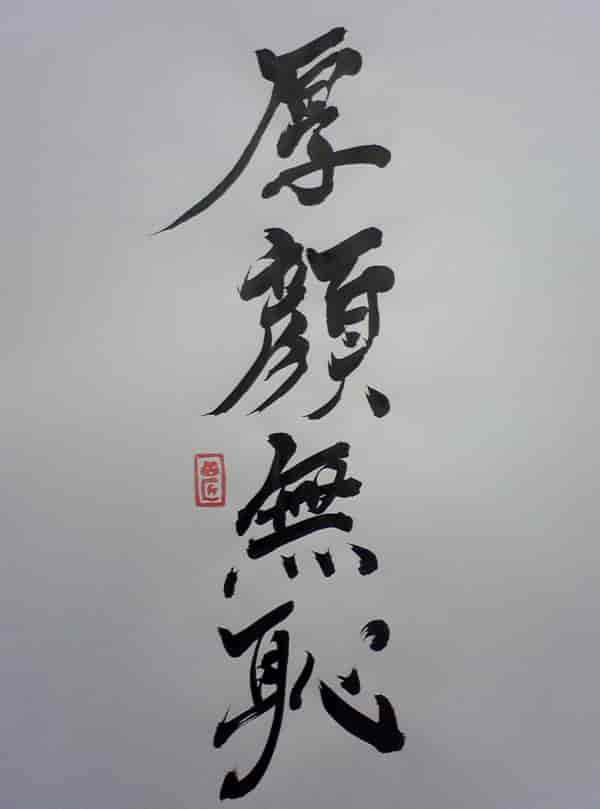 厚顔無恥